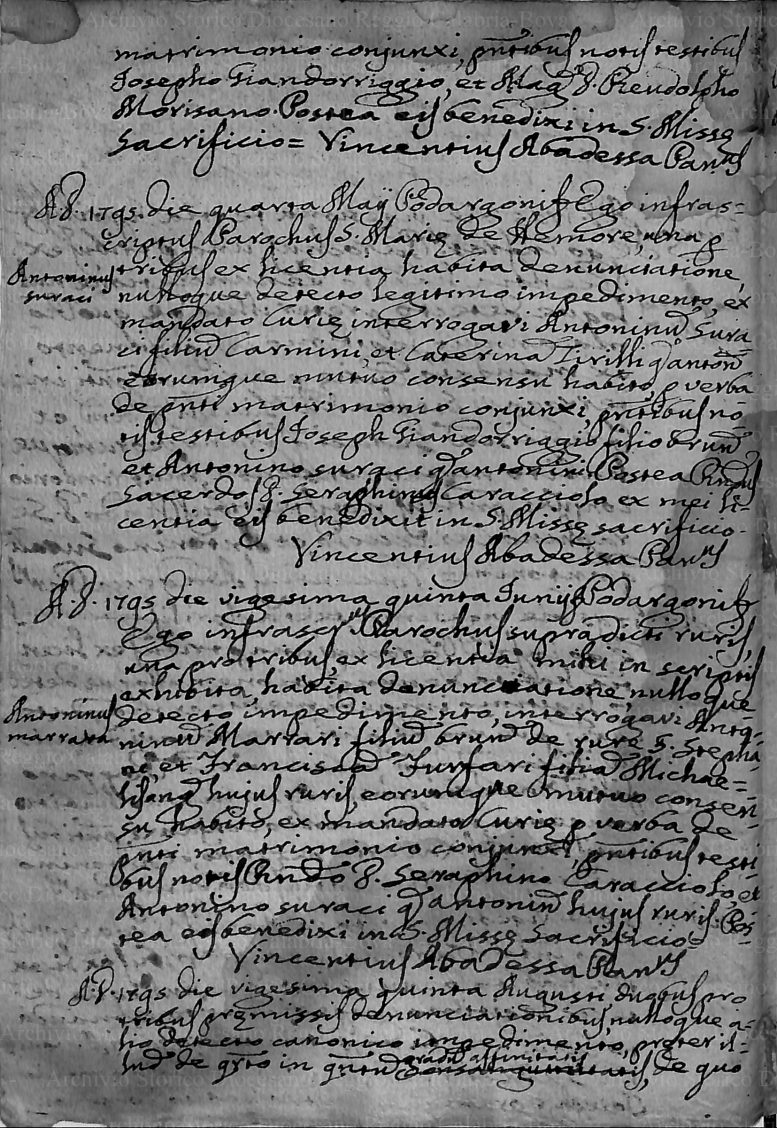 matrimonio conjunxi, pntibus notis testibus
Josepho Giandorriggio, et Mag. D. Pieudolpho
Morisano. Postea eis benedixi in S. Missę
Sacrificio = Vincentius Abadessa Parus
AD. 1795. die quarta Maÿ Podargonis Ego infras=
criptus Parochus S. Marię de Nemore, una p
Antoninus
suraci
tribus ex licentia habita denunciatione,
nulloque detecto legitimo impedimento, ex
mandato Curię interrogavi Antoninū Sura
ci filiū Carmini, et Caterina Tirilli q antonī
eorumque mutuo consensu habito, p verba
de pnti matrimonio conjunxi, pntibus no-
tis testibus Joseph Giandorriggio filio brunī
et Antonino suraci q antonini. Postea Rndus
Sacerdos D. Seraphinus Caracciolo ex mei li-
centia eis benedixit in S. Missę sacrificio.
Vincentius Abadessa Parus
AD. 1795 die vigesima quinta Junÿ Podargonis
Ego infrascrus Parochus supradicti ruris,
una pro tribus, ex licentia mihi in scriptis
exhibita, habita denunciatione, nulloque
Antoninus
marrara
detecto impedimento, interrogavi Anto-
ninū Marrari filiū brunī de rure S. Stepha
ni, et Franciscā Furfari filiā Michae=
lis, hujus ruris, eorumque mutuo consen-
su habito, ex mandato Curię p verba de
pnti matrimonio conjunxi, pntibus testi
bus notis Rndo D. Seraphino Caracciolo, et
Antonino suraci q antonini hujus ruris. Pos-
tea eis benedixi in S. Missę Sacrificio=
Vincentius Abadessa Parus
A.D. 1795 die vigesima quinta Augusti, duabus pro
tribus pręmissis denunciationibus, nulloque a-
lio detecto canonico impedimento, pręter il-
gradu affinitatis
lud de qrto in qntū consanguinitatis, de quo